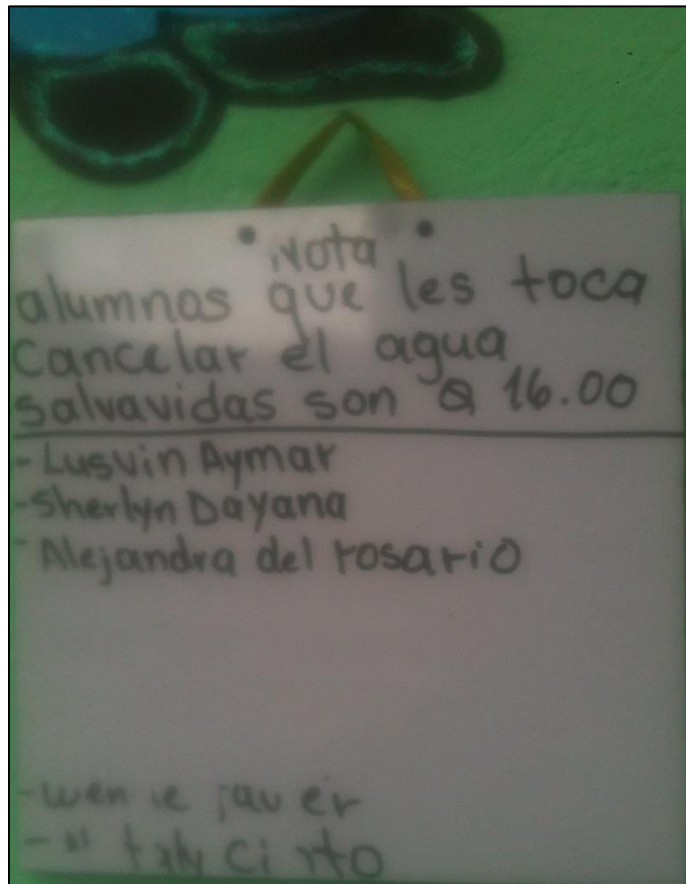 Nota
alumnos que les toca
Cancelar el agua
salvavidas son Q 16.00
- Lusvin Aymar
- Sherlyn Dayana
- Alejandra del rosario